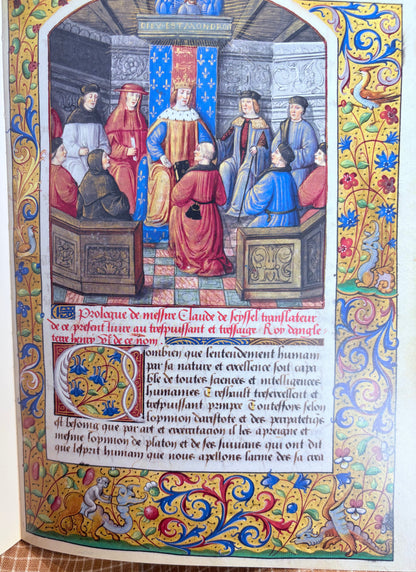 Prologue de messire Claude de Seyssel translateur
de ce present livre au trespuissant et tressaige Roy dangle
terre henry VIIe de ce nom
Combien que lentendement humain
par sa nature et excellence soit capa
ble de toutes sciences et intelligences
humaines Treshault tresexcellent et
trespuissant prince Toutesfois selon
lopinion daristote et des perpatetiqs
est besoing que par art et exercitation il les apreigne et
mesme lopinion de platon et de ses suivans qui ont dit
que lesprit humain que nous apellons larme des sa crea